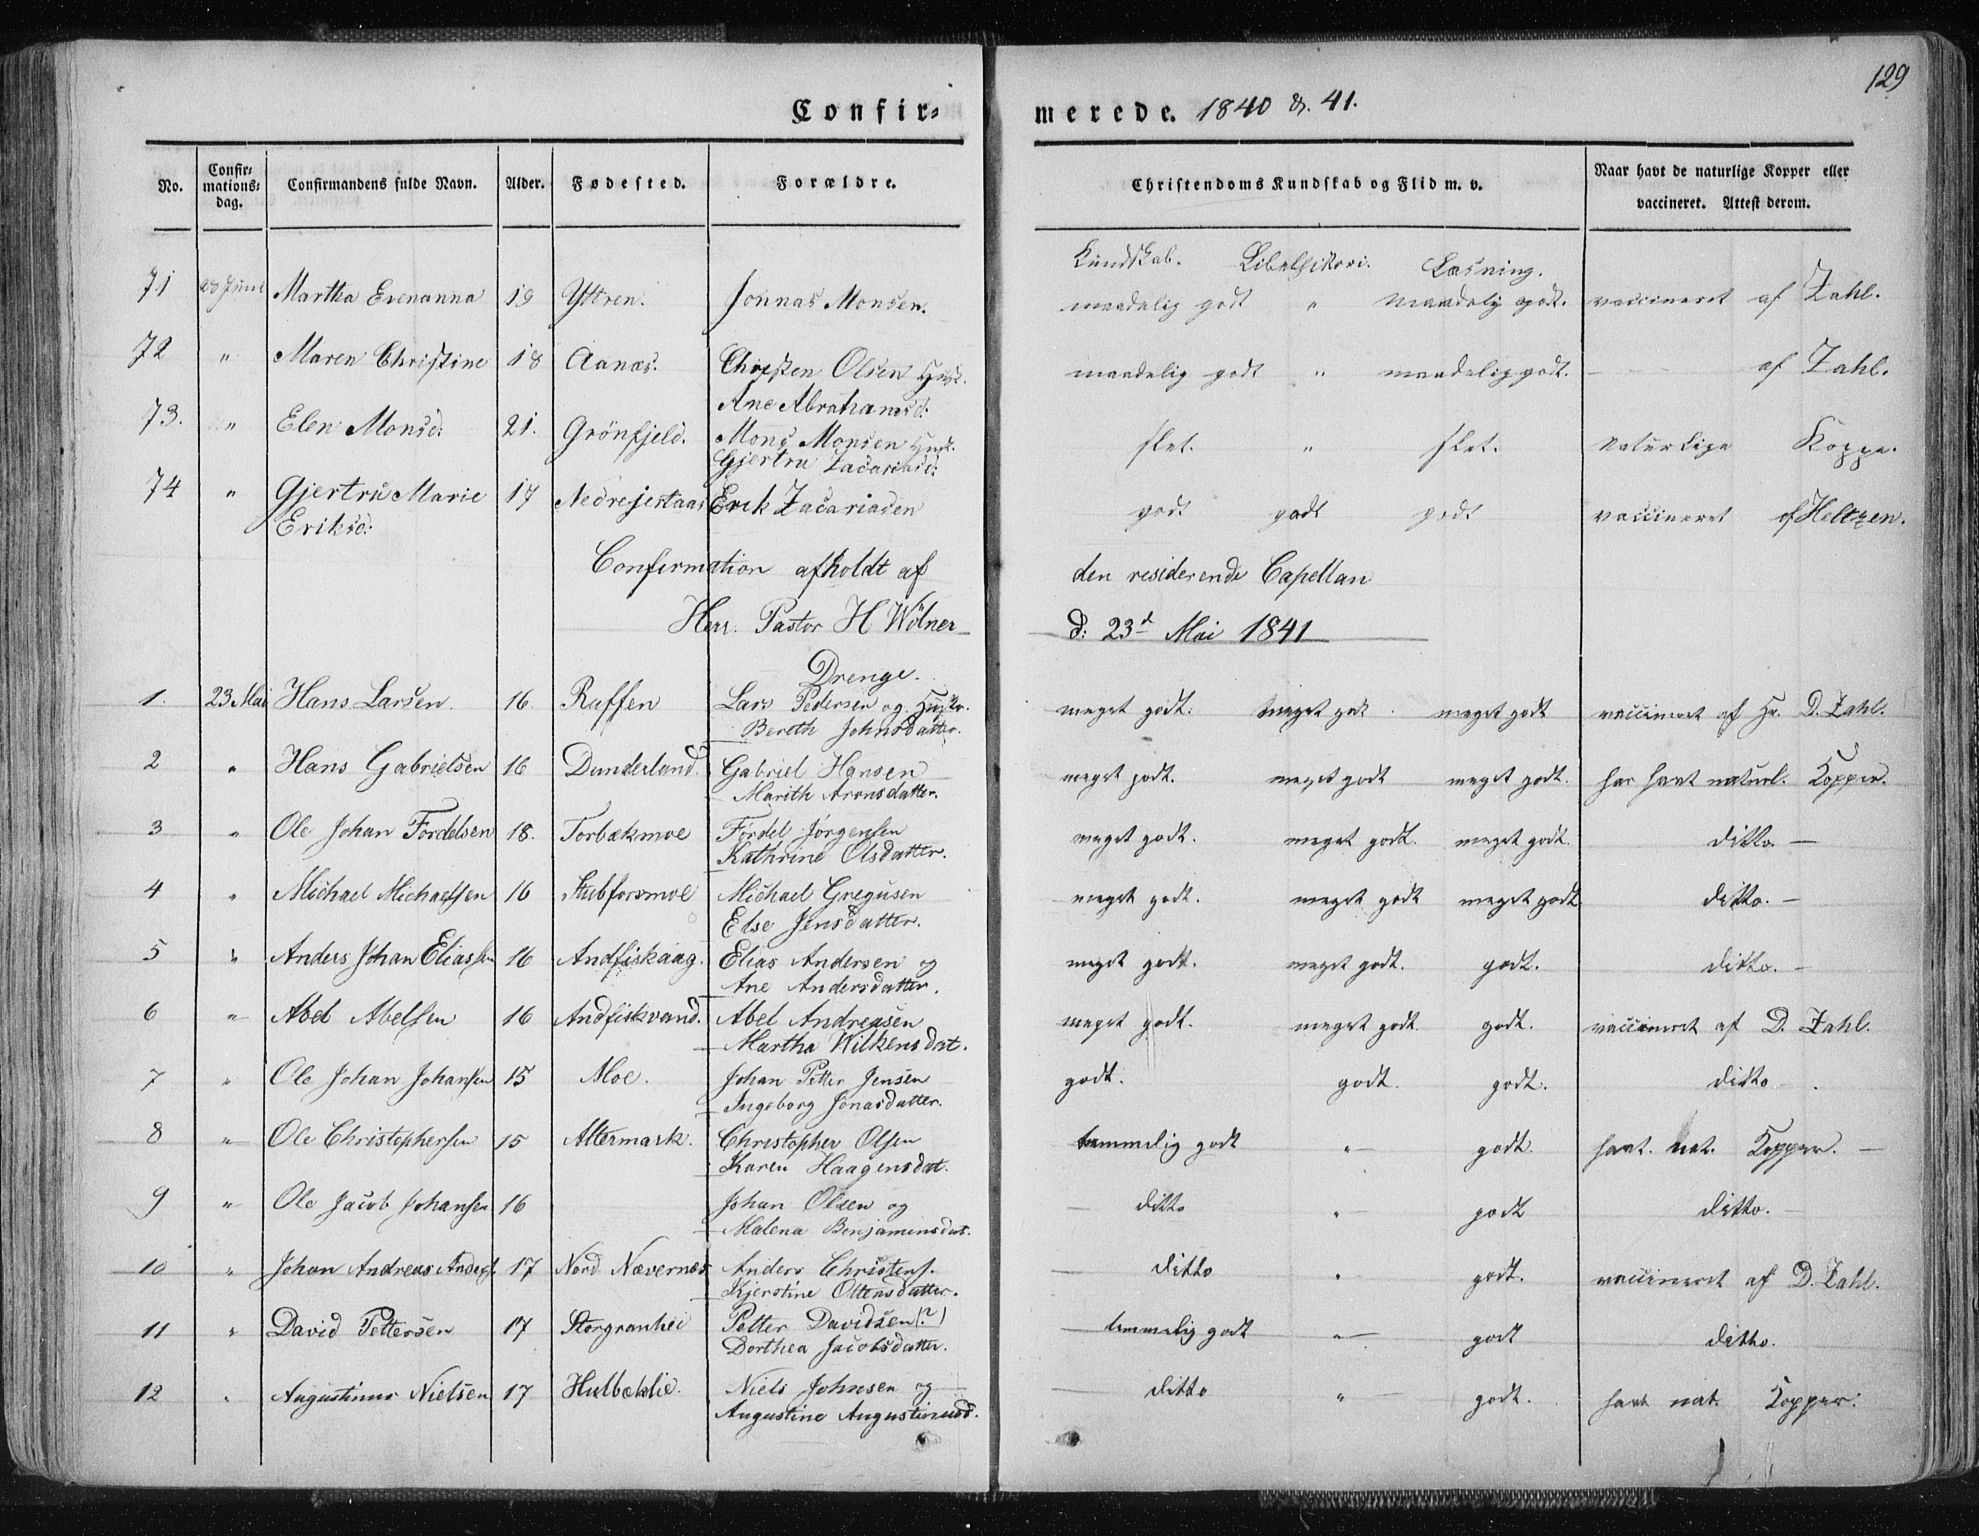 129
Confir= merede. 1840 & 41.
No. Confir= mations= dag. Confirmandens fulde Navn. Alder. Fødested. Forældre. Christendoms Kundskab og Flid m. v. Naar havt de naturlige Kopper eller vaccineret. Attest derom.
Kundskab. Bibelhistori. Læsning.
71 Juni Martha Evenanna 19 Yttren. Jonnas Monsen. maadelig godt " maadelig godt. vaccineret af Zahl.
72 " Maren Christine 18 Aanæs. Christen Olsen Hust. maadelig godt " maadelig godt. — af Zahl.
Ane Abrahamsd:
73. " Elen Monsd: 21. Grönfjeld. Mons Monsen Hust. slet. " slet. naturlige Koppe.
Gjertru Zacariasd:
74 " Gjertru Marie 17 Nedrejestaas Erik Zacariasen godt godt godt vaccineret af Heltzen.
Eriksd:
Confirmation afholdt af den residerende Capellan
Herr. Pastor H Wölner d: 23d Mai 1841
Drenge.
1. 23 Mai Hans Larsen. 16. Raffen Lars Pedersen og Hustr. meget godt. meget godt meget godt vaccineret af Hr. D. Zahl.
Bereth Johnsdatter.
2 " Hans Gabrielsen 16 Dunderland. Gabriel Hansen meget godt. meget godt meget godt. har havt naturl. Kopper.
Marith Aronsdatter.
3 " Ole Johan Fordelsen 18. Torbækmoe Fordel Jørgensen meget godt. meget godt. meget godt. ditto. —
Kathrine Olsdatter.
4 " Michael Michaelsen 16 Stubforsmoe Michael Gregusen meget godt. meget godt meget godt. ditto. —
Else Jensdatter.
5 " Anders Johan Eliassen 16 Andfiskaag. Elias Andersen og meget godt. meget godt. godt. ditto. —
Ane Andersdatter.
6 " Abel Abelsen 16 Andfiskvand. Abel Andreasen meget godt. meget godt godt. vaccineret af D. Zahl.
Martha Wilkensdat.
7 " Ole Johan Johansen 15 Moe. Johan Petter Jensen godt. godt. godt. ditto
Ingeborg Jonasdatter.
8 " Ole Christophersen 15 Altermark. Christopher Olsen temmelig godt " godt. havt. nat. Kopper. —
Karen Haagensdat.
9 " Ole Jacob Johansen 16 Johan Olsen og ditto " godt ditto. —
Malena Benjaminsdat.
10 " Johan Andreas Anders. 17 Nord Nævernes Anders Christens. ditto " godt. vaccineret af D. Zahl.
Kjerstine Ottensdatter.
11 " David Pettersen 17 Storgranhei Petter Davidsen (?) temmelig godt " godt ditto.
Dorthea Jacobsdatter.
12 " Augustinus Nielsen 17 Hulbæklie. Niels Johnsen og ditto " godt. havt nat. Kopper.
Augustine Augustinusd.